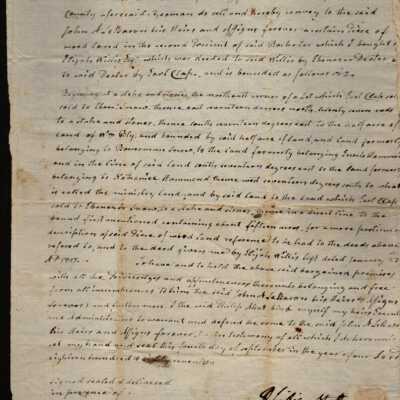 County aforesaid, Yeoman do sell and hereby convey to the said
John A. LeBaron his Heirs and Assigns forever a certain Piece of
wood land in the second Precinct of said Rochester which I bought of
Elijah Willis Esqr. which was Deeded to said Willis by Ebenezer Dexter &
to said Dexter by Earl Clapp, and is bounded as follows viz.
Begining at a stake and stones the northeast corner of a Lot which Earl Clap sold
sold to Eben. Snow, thence east seventeen degrees north, twenty seven rods
to a stake and stones, thence south seventeen degrees east to the half acre of
land of Wm. and bounded by said half acre of land, and land formerly
belonging to Bowerman Snow, to the land formerly belonging Hammond
and in the line of said land south seventeen degrees east to the land formerly
belonging to Nathaniel Hammond thence west seventeen degrees south to what
is called the ministry land, and by said land to the land which Earl Clap
sold to Ebenezer Snow, to a stake and stones, thence in a direct line to the
bound first mentioned containing about fifteen acres, for a more particular
description of said Piece of wood land reference to be had to the deeds above
refered to, and to the deed given me by Elijah Willis Esqr dated January
AD 1817.
To have and to hold the above said bargained premises
with all the Priviledges and appurtenances thereunto belonging and free
from all incumbrances to him the said John A. LeBaron his Heirs & Assigns
forever, and furthermore I the said Phillip bind myself my heirs Execut
and Administrators to warrant and defend the same to the said John A. LeBaron
his Heirs and Assigns forever. In testimony of all which I do hereunto
set my hand and seal this fourth day of September in the year of our Lord
eighteen hundred & seventeen
signed sealed & delivered
in presence of